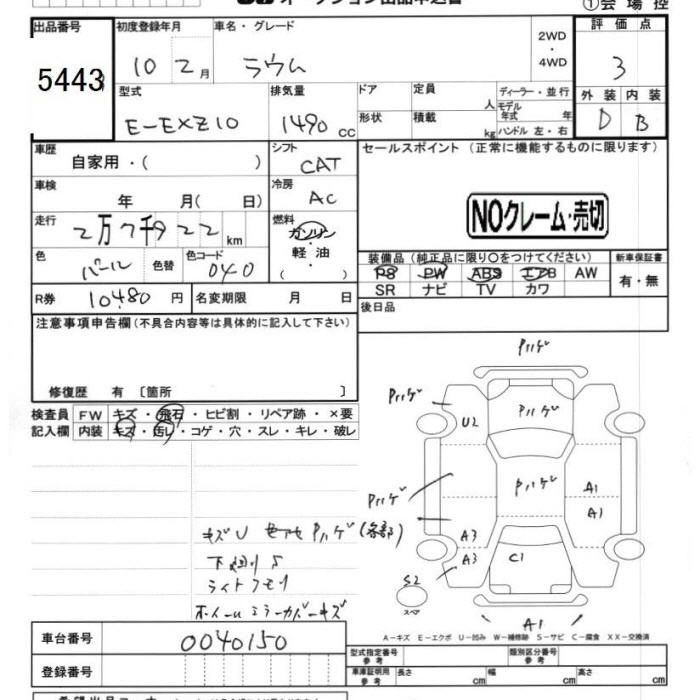 ①会場控
出品番号
5443
初度登録年月
10 2月
車名・グレード
ラウム
2WD
・
4WD
評価点
3
型式
E-EXZ10
排気量
1490 CC
ドア
定員
人
形状
積載
kg
ディーラー・並行
モデル年式 年
ハンドル 左・右
外装 内装
D B
車歴
自家用・( )
シフト
CAT
セールスポイント(正常に機能するものに限ります)
車検
年 月( 日)
冷房
AC
NOクレーム・売切
走行
2万7千922 km
燃料
ガソリン
軽油
( )
色
パール
色替
色コード
040
装備品(純正品に限り○をつけてください)
新車保証書
PS PW ABS エアB AW
有・無
SR ナビ TV カワ
R券
10480 円
名変期限 月 日
後日品
注意事項申告欄(不具合内容等は具体的に記入して下さい)
修復歴 有 〔箇所 〕
検査員
記入欄
FW キズ・飛石・ヒビ割・リペア跡・×要
内装 キズ・汚レ・コゲ・穴・スレ・キレ・破レ
Pハゲ
Pハゲ
Pハゲ
U2
Pハゲ
Pハゲ
A1
A1
A3
A3
C1
S2
スペア
A1
キズU Pハゲ(各部)
下廻りS
ライトクモリ
ホイールミラーカバーキズ
A-キズ E-エクボ U-凹み W-補修跡 S-サビ C-腐食 XX-交換済
車台番号
0040150
登録番号
型式指定番号
参考
類別区分番号
参考
車庫証明用
参考
長さ cm
幅 cm
高さ cm